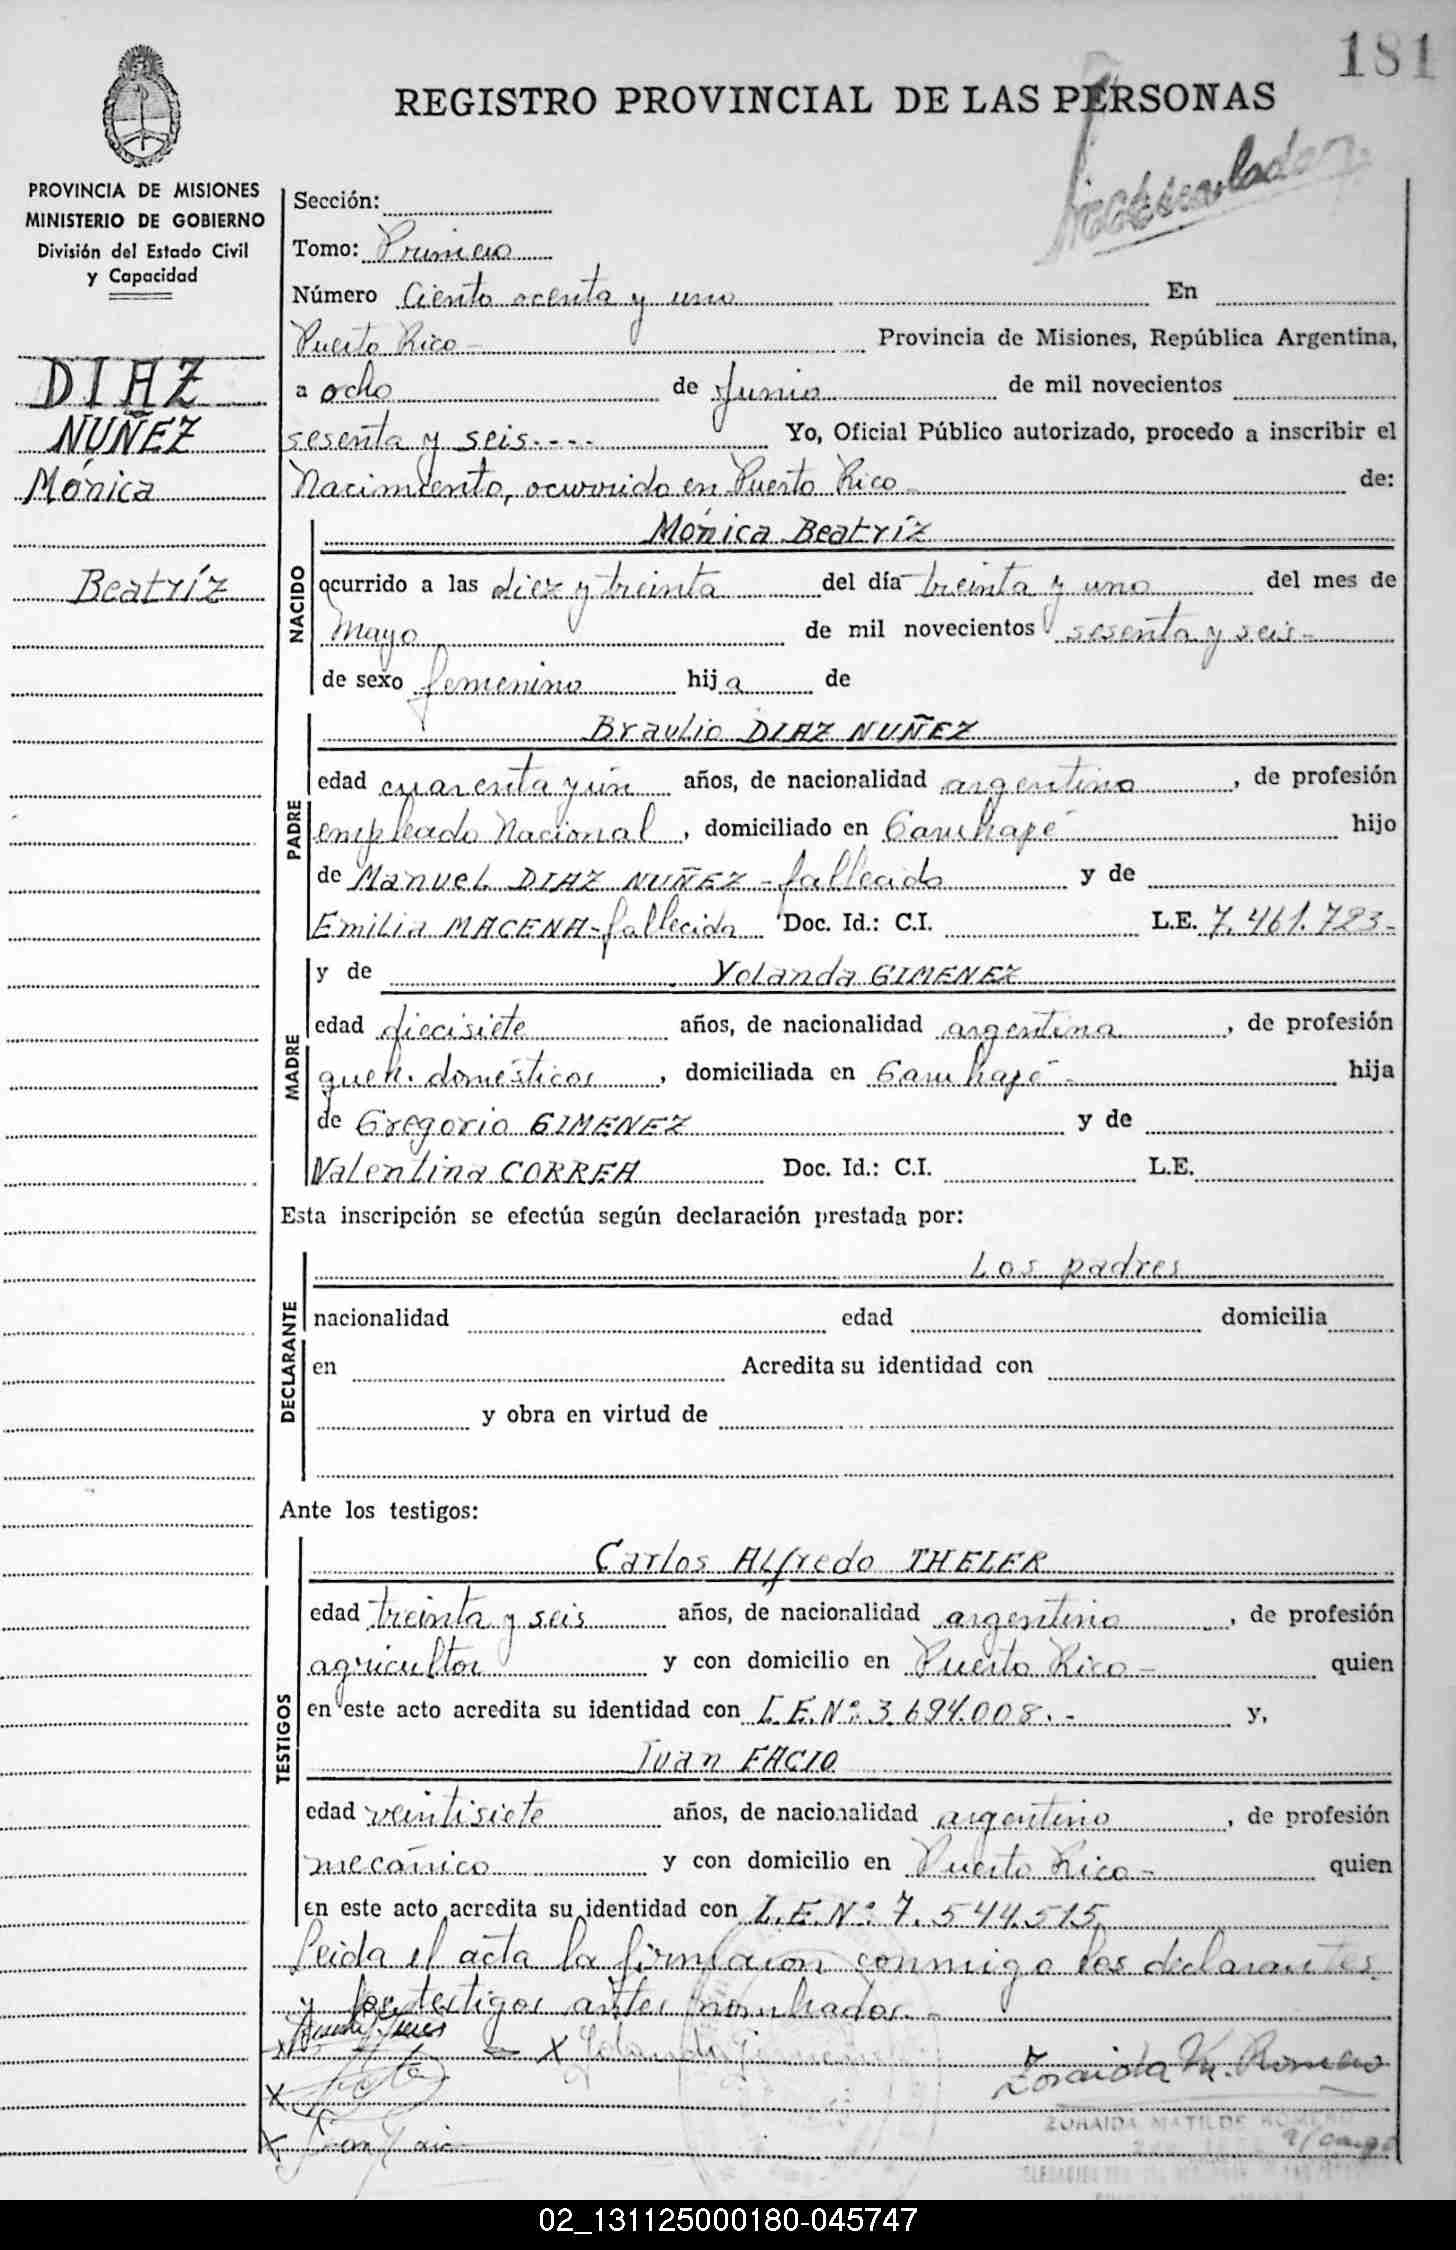 181
REGISTRO PROVINCIAL DE LAS PERSONAS
Matriculado
PROVINCIA DE MISIONES
MINISTERIO DE GOBIERNO
División del Estado Civil
y Capacidad
DIAZ
NUÑEZ
Mónica
Beatríz
Sección:
Tomo: Primero
Número Ciento ocenta y uno En
Puerto Rico - Provincia de Misiones, República Argentina,
a ocho de Junio de mil novecientos
sesenta y seis.--- Yo, Oficial Público autorizado, procedo a inscribir el
Nacimiento, ocurrido en Puerto Rico - de:
NACIDO
Mónica Beatríz
ocurrido a las diez y treinta del día treinta y uno del mes de
Mayo de mil novecientos sesenta y seis-
de sexo femenino hija de
PADRE
Braulio DIAZ NUÑEZ
edad cuarenta y ún años, de nacionalidad argentino, de profesión
empleado Nacional, domiciliado en Caruhapé hijo
de Manuel DIAZ NUÑEZ - fallecido y de
Emilia MACENA - fallecida Doc. Id.: C.I. L.E. 7.461.723-
MADRE
y de Yolanda GIMENEZ
edad diecisiete años, de nacionalidad argentina, de profesión
queh. domésticos, domiciliada en Caruhapé - hija
de Gregorio GIMENEZ y de
Valentina CORREA Doc. Id.: C.I. L.E.
Esta inscripción se efectúa según declaración prestada por:
DECLARANTE
Los padres
nacionalidad edad domicilia
en Acredita su identidad con
y obra en virtud de
Ante los testigos:
TESTIGOS
Carlos Alfredo THELER
edad treinta y seis años, de nacionalidad argentino, de profesión
agricultor y con domicilio en Puerto Rico - quien
en este acto acredita su identidad con L.E.Nº: 3.694.008.- y,
Juan FACIO
edad veintisiete años, de nacionalidad argentino, de profesión
mecánico y con domicilio en Puerto Rico - quien
en este acto acredita su identidad con L.E.Nº: 7.544.515,
Leida el acta la firmaron conmigo los declarantes
y los testigos antes nombrados.-
X X Yolanda Gimenez
Zoraida M. Romero
X
ZORAIDA MATILDE ROMERO
X Juan Facio a/cargo
02_131125000180-045747